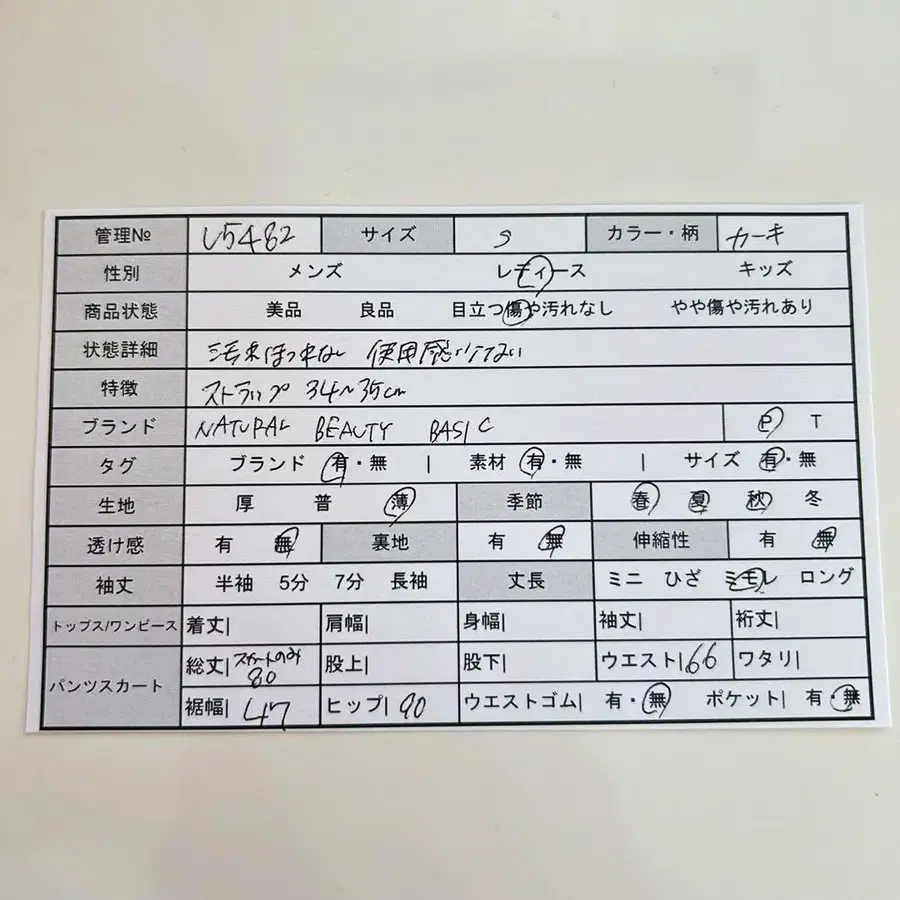 管理№ し5482 サイズ S カラー・柄 カーキ
性別 メンズ レディース キッズ
商品状態 美品 良品 目立つ傷や汚れなし やや傷や汚れあり
状態詳細 使用感
特徴 ストラップ 34~35cm
ブランド NATURAL BEAUTY BASIC P T
タグ ブランド 有・無 | 素材 有・無 | サイズ 有・無
生地 厚 普 薄 季節 春 夏 秋 冬
透け感 有 無 裏地 有 無 伸縮性 有 無
袖丈 半袖 5分 7分 長袖 丈長 ミニ ひざ ミモレ ロング
トップス/ワンピース 着丈| 肩幅| 身幅| 袖丈| 裄丈|
パンツスカート 総丈| スカートのみ 80 股上| 股下| ウエスト| 66 ワタリ|
裾幅| 47 ヒップ| 90 ウエストゴム| 有・無 ポケット| 有・無